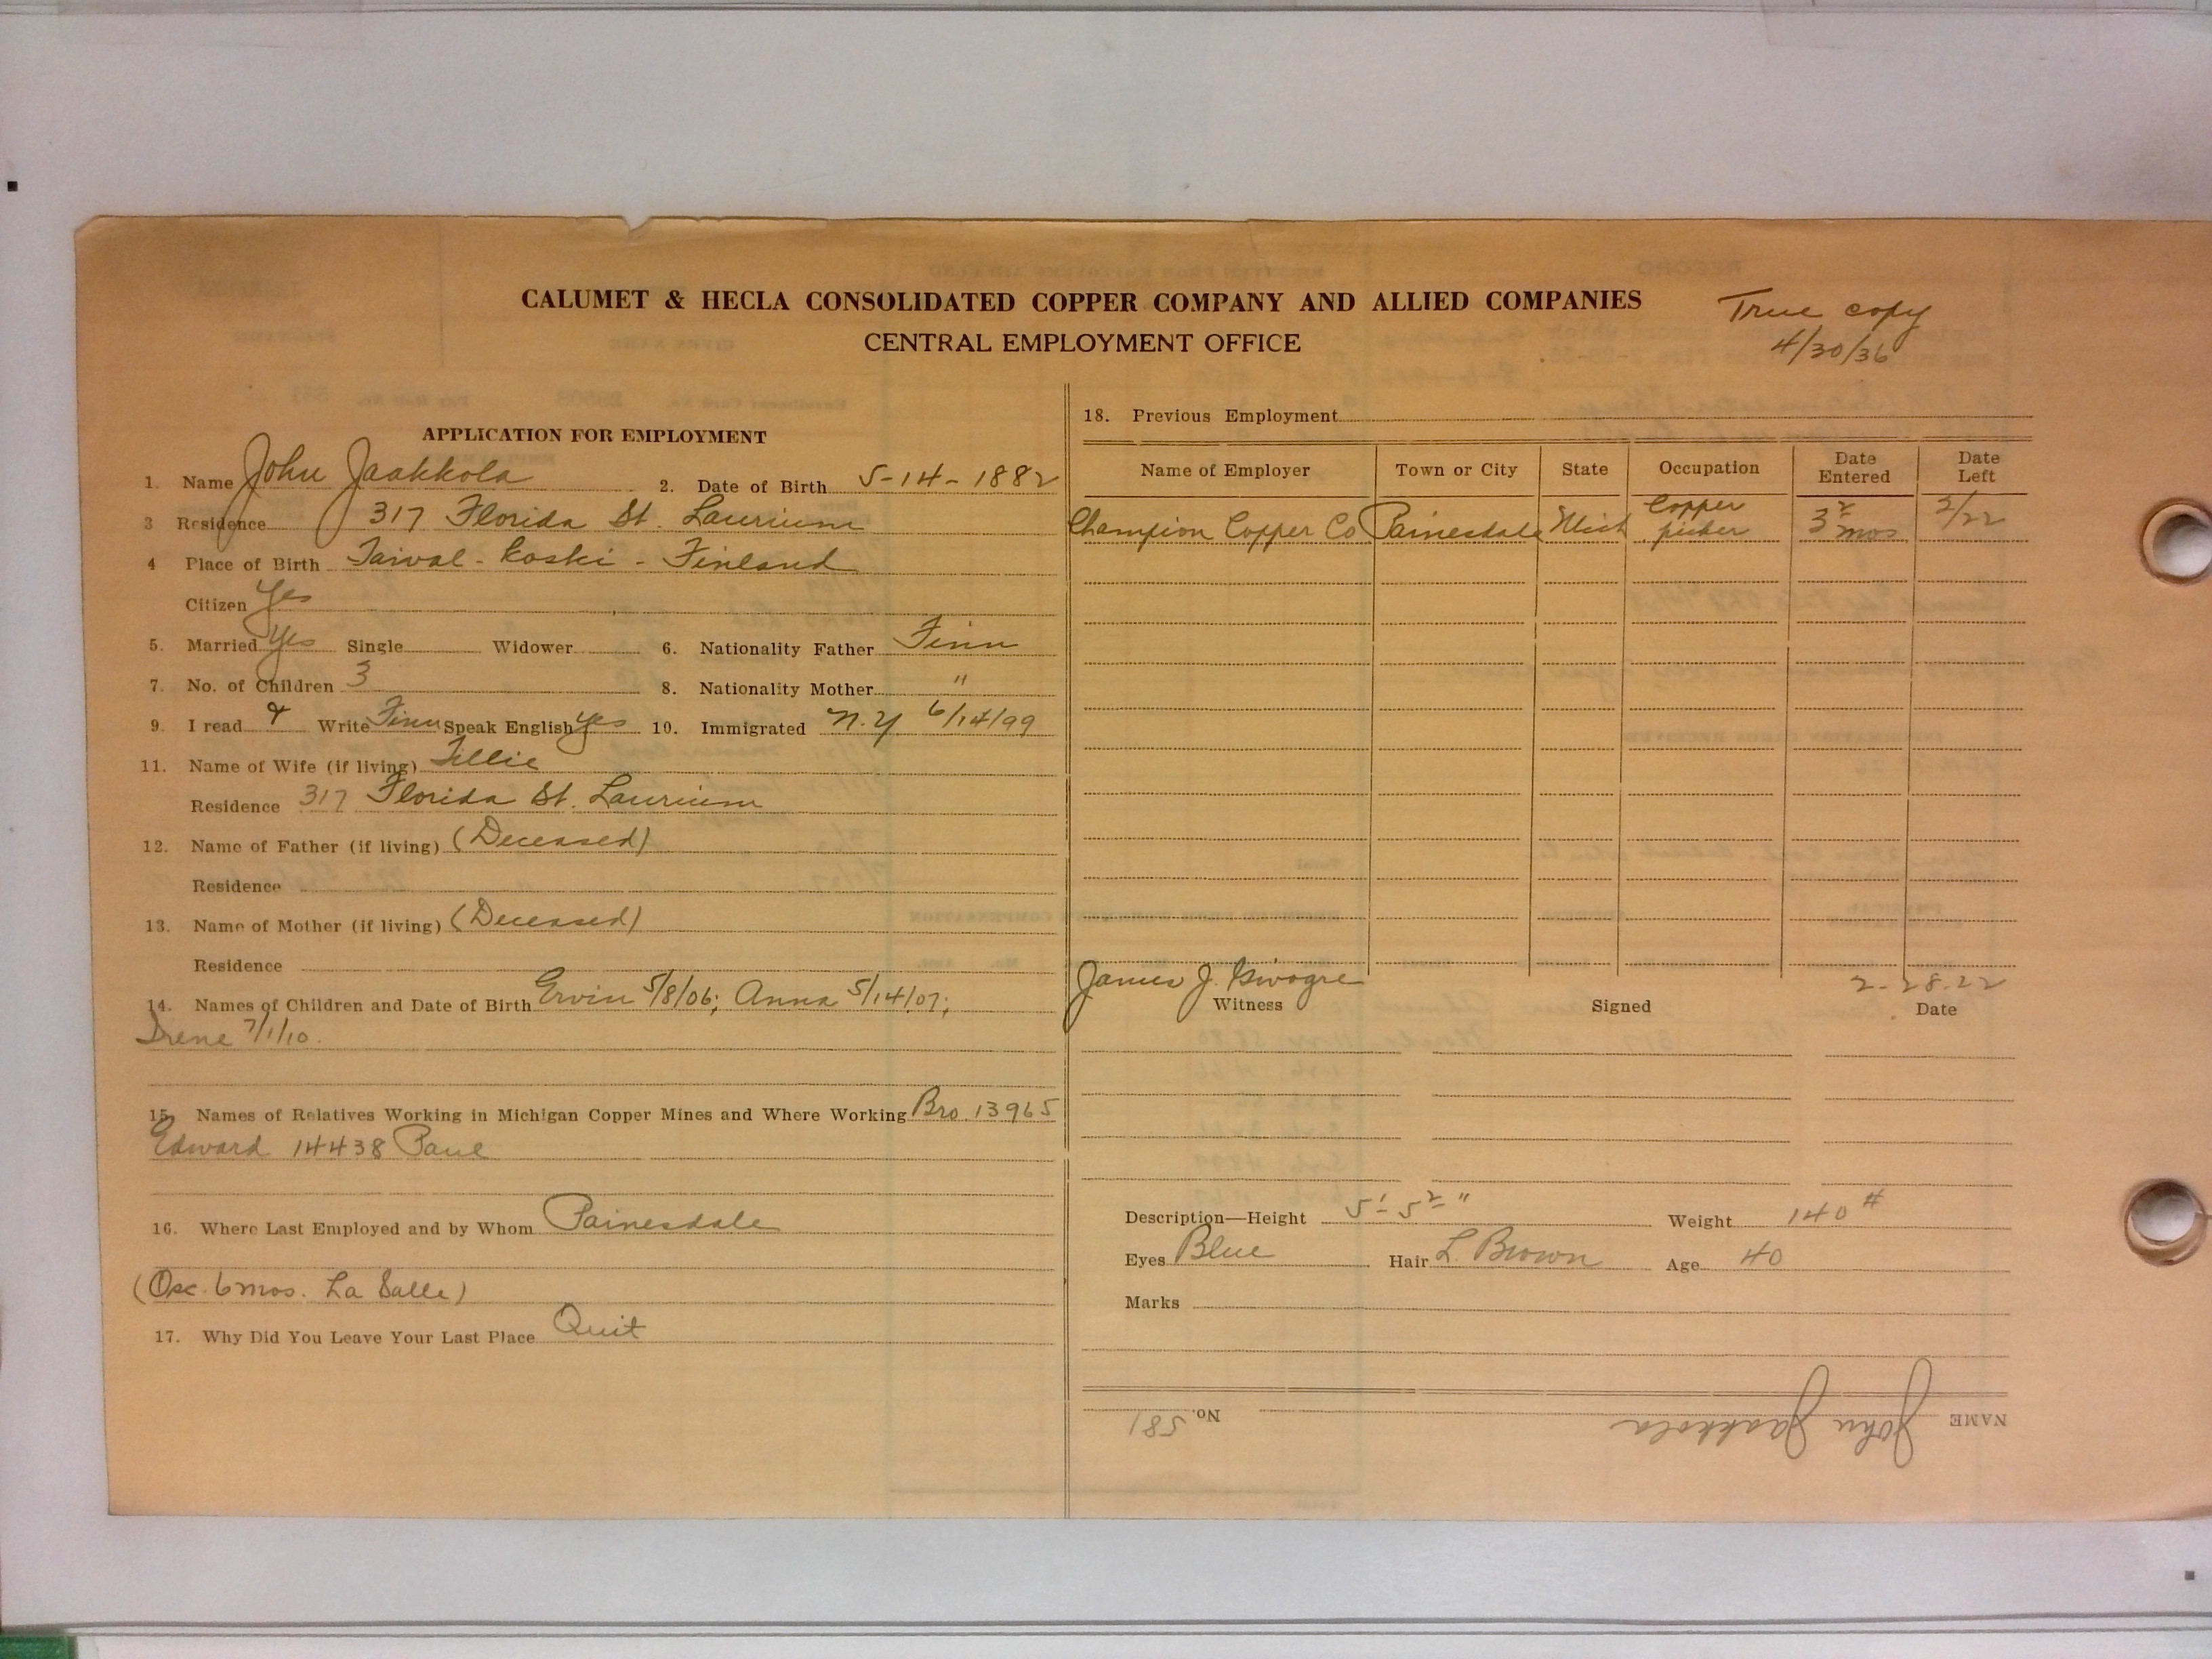 CALUMET & HECLA CONSOLIDATED COPPER COMPANY AND ALLIED COMPANIES
CENTRAL EMPLOYMENT OFFICE
True copy
4/30/36
APPLICATION FOR EMPLOYMENT
1. Name John Jaakkola 2. Date of Birth 5-14-1882
3 Residence 317 Florida St. Laurium
4 Place of Birth Taival-koski - Finland
Citizen Yes
5. Married Yes Single Widower 6. Nationality Father Finn
7. No. of Children 3 8. Nationality Mother "
9. I read & Write Finn Speak English Yes 10. Immigrated N.Y 6/14/99
11. Name of Wife (if living) Tillie
Residence 317 Florida St. Laurium
12. Name of Father (if living) (Deceased)
Residence
13. Name of Mother (if living) (Deceased)
Residence
14. Names of Children and Date of Birth Ervin 5/8/06; Anna 5/14/07;
Irene 7/1/10.
15. Names of Relatives Working in Michigan Copper Mines and Where Working Bro. 13965
Edward 14438
16. Where Last Employed and by Whom Painesdale
(Osc. 6 mos. La Salle)
17. Why Did You Leave Your Last Place Quit
18. Previous Employment
Name of Employer Town or City State Occupation Date Entered Date Left
Champion Copper Co Painesdale Mich Copper picker 3 mos 2/22
James J. 2-28-22
Witness Signed Date
Description—Height 5' 5 2 " Weight 140 #
Eyes Blue Hair L. Brown Age 40
Marks
NAME John Jaakkola No. 581